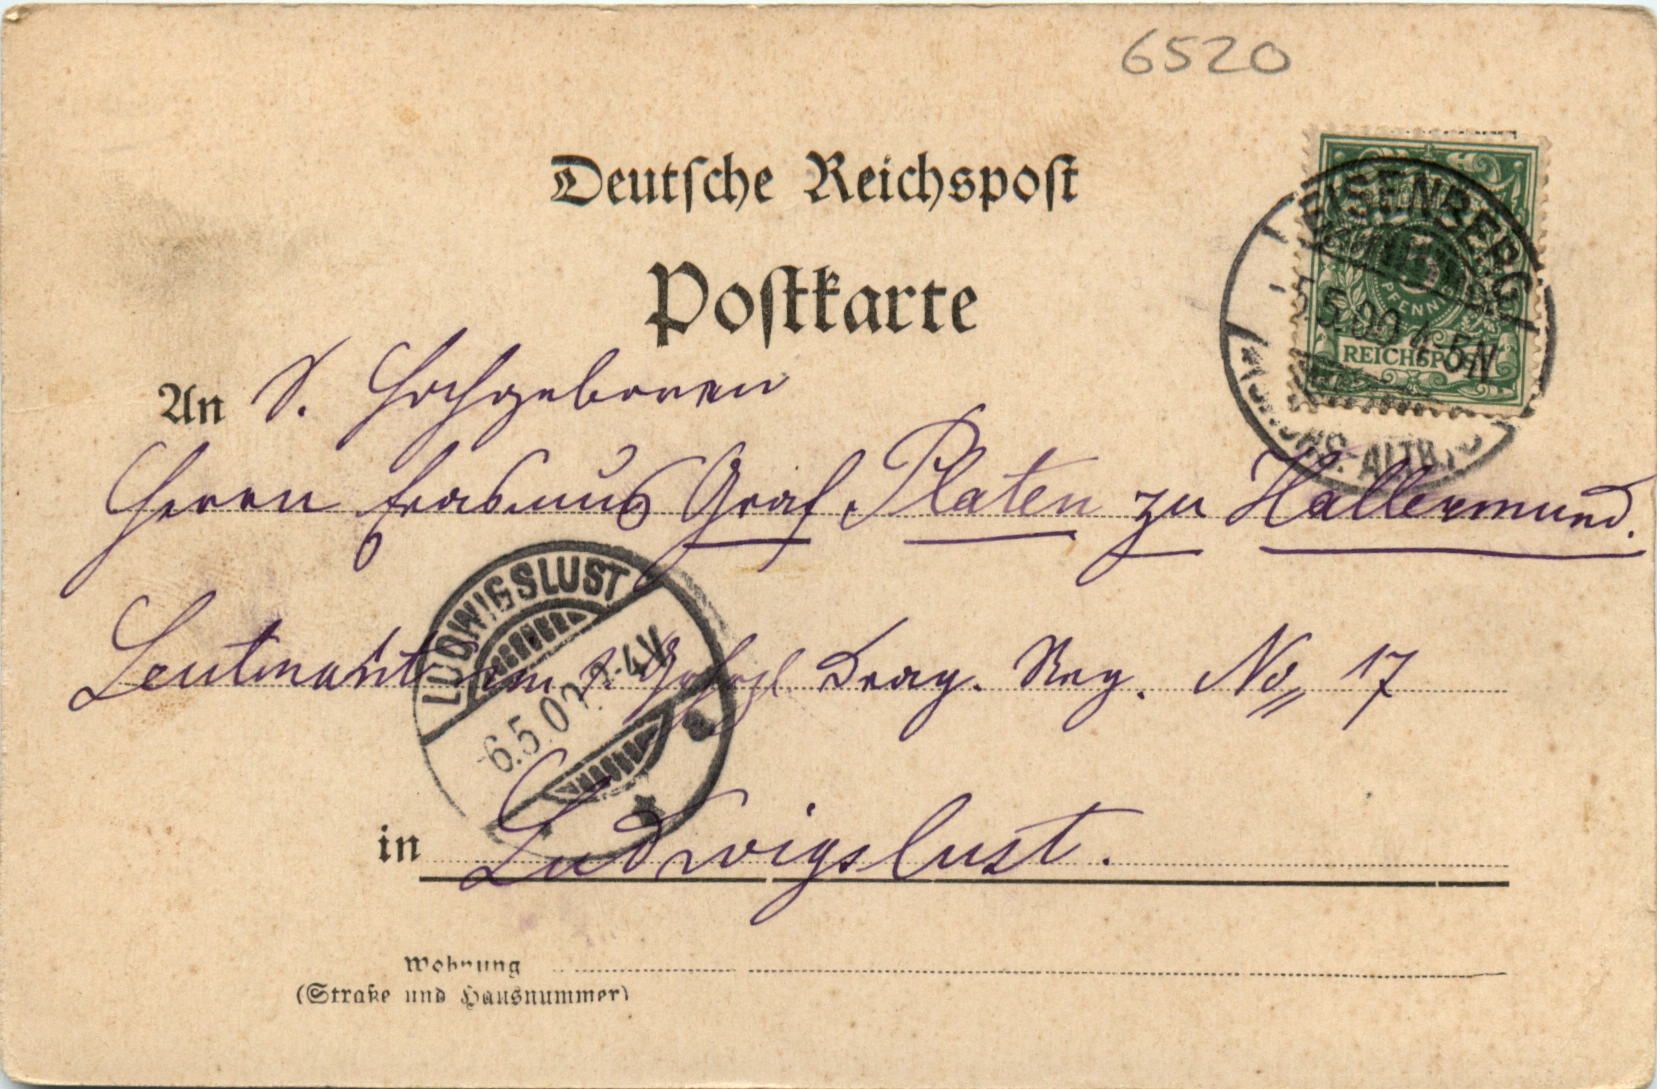 6520
Deutsche Reichspost
Postkarte
EISENBERG
5.5.00 4-5N
PFENNIG
REICHSPOST
An S. Hochgeboren
Herrn Erasmus Graf Platen zu Hallermund.
Leutnant im Drag. Reg. No 17
LUDWIGSLUST
6.5.00
in Ludwigslust.
Wohnung
(Straße und Hausnummer)